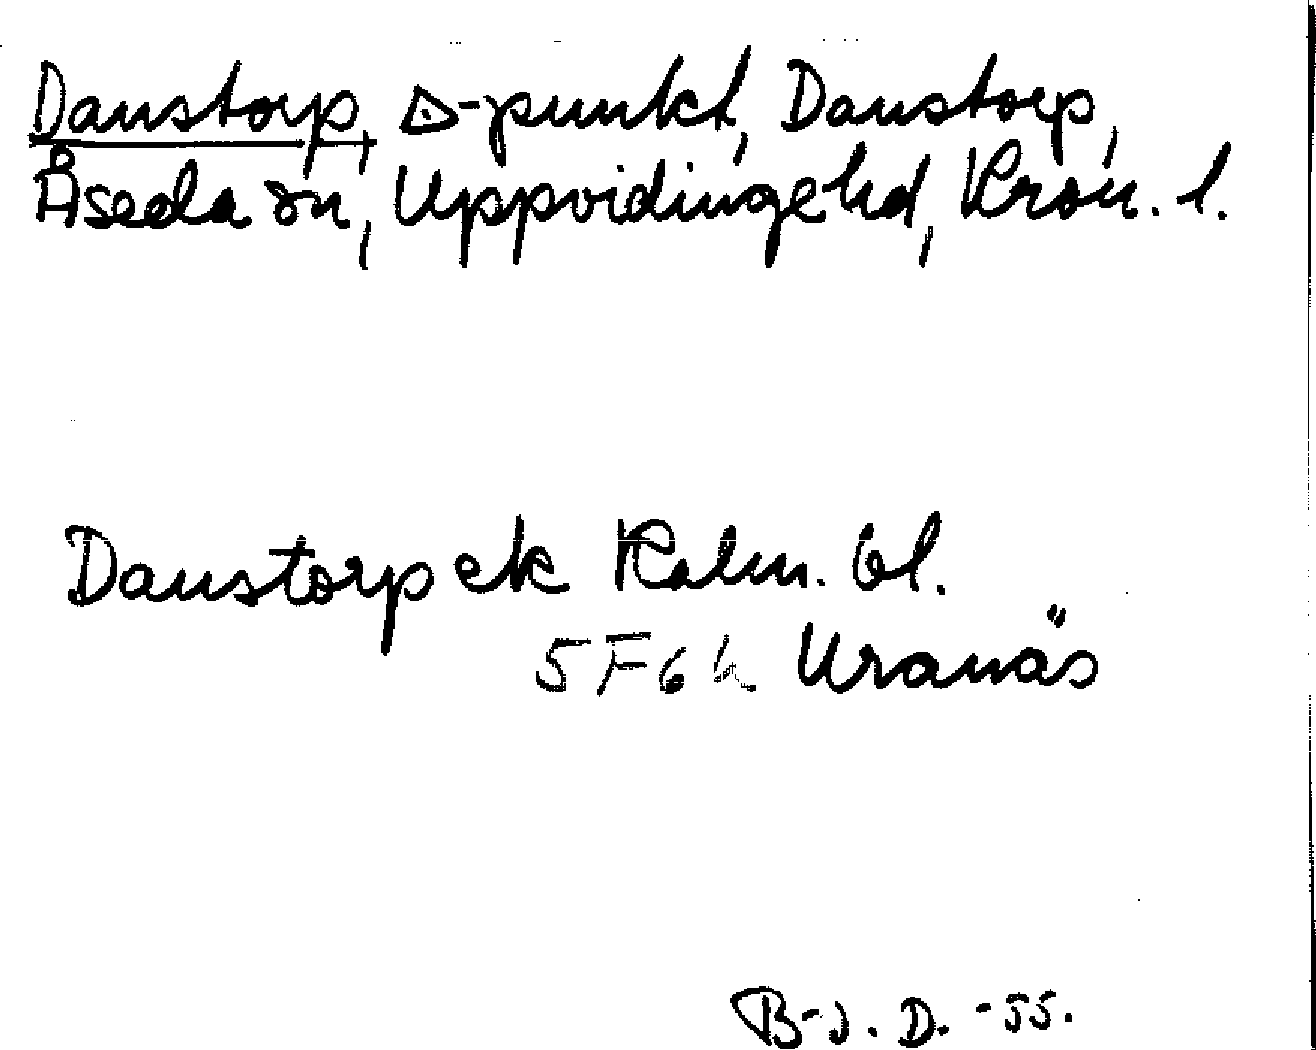 Danstorp, △-punkt, Danstorp,
Åseda sn, Uppvidinge hd, Kron. l.
Danstorp ek Kalm. bl.
5F6h Uranäs
B-J. D. -55.